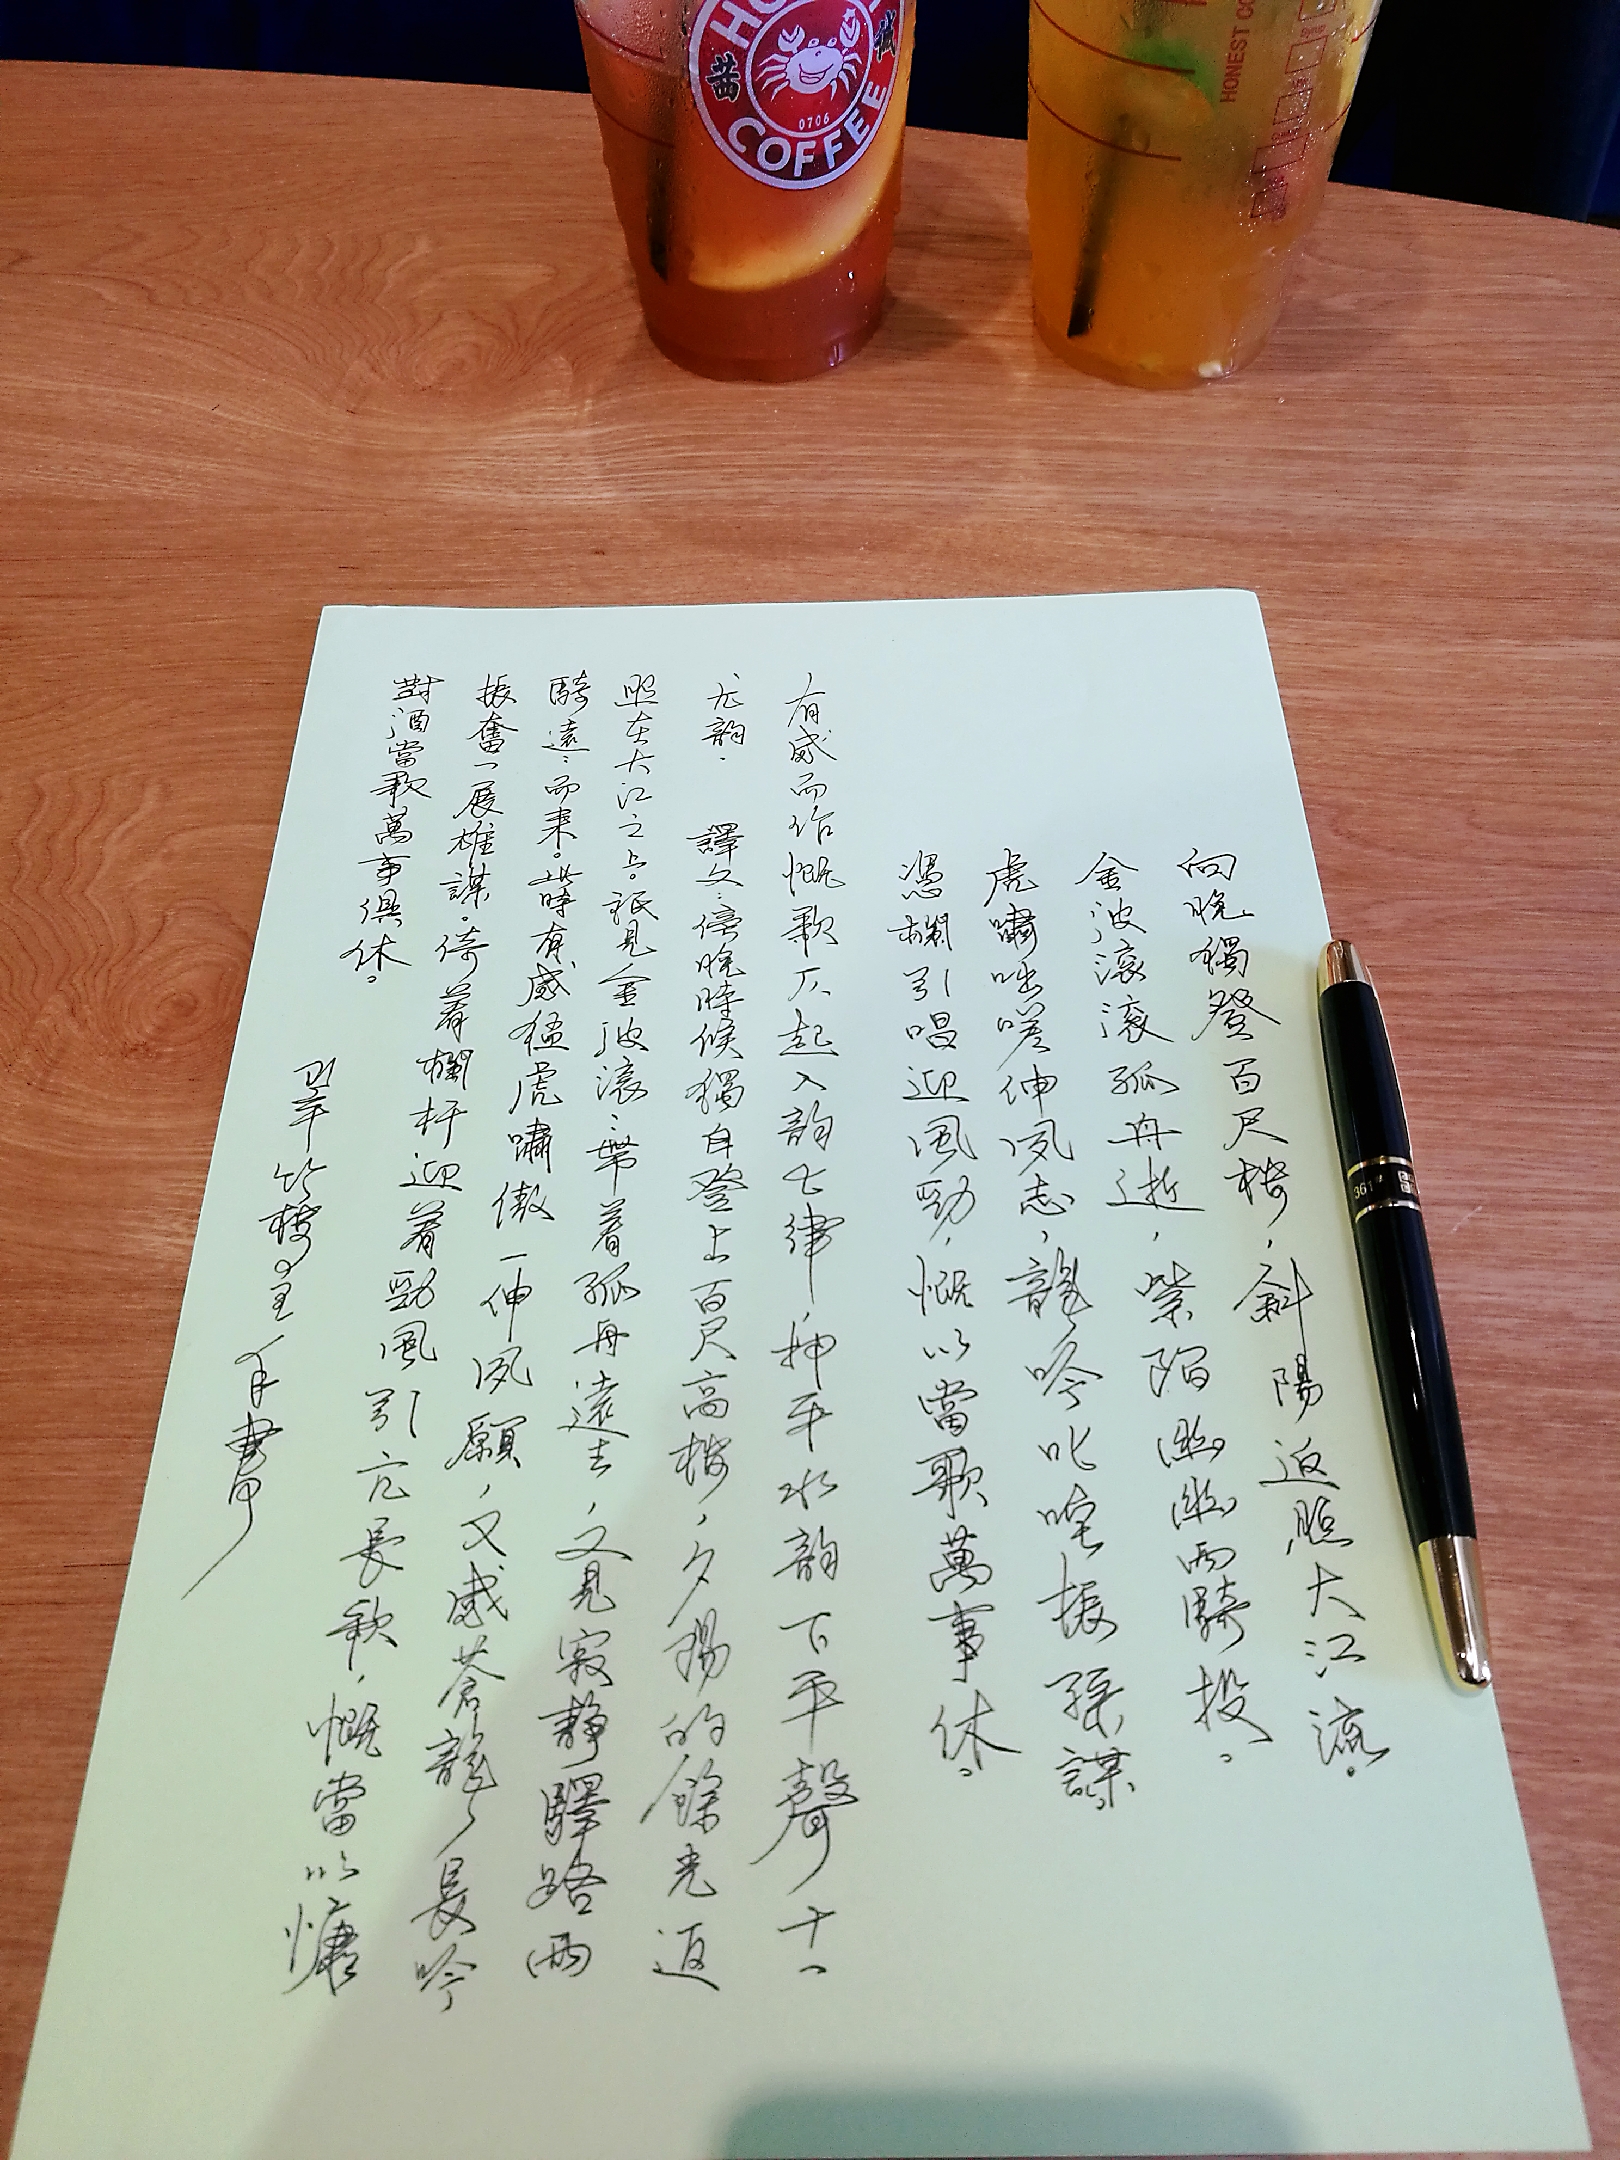 COFFEE
0706
茜
誠
HONEST CO
向晚獨登百尺樓，斜陽返照大江流。
金波滾滾孤舟逝，紫陌幽幽兩騎投。
虎嘯咄嗟伸夙志，龍吟叱咤振孫謀
憑欄引唱迎風勁，慨以當歌萬事休。
有感而作慨歌一仄起入韵七律，押平水韵下平聲十一
尤韵. 譯文：傍晚時候獨自登上百尺高樓，夕陽的餘光返
照在大江之上。祇見金波滾：帶着孤舟遠去，又見寂靜驛路兩
騎遠：而來。此時有感猛虎嘯傲一伸夙願，又感蒼龍長吟
振奮一展雄謀。倚着欄杆迎着勁風引亢長歌，慨當以慷
對酒當歌萬事俱休。
樓主手書
3617